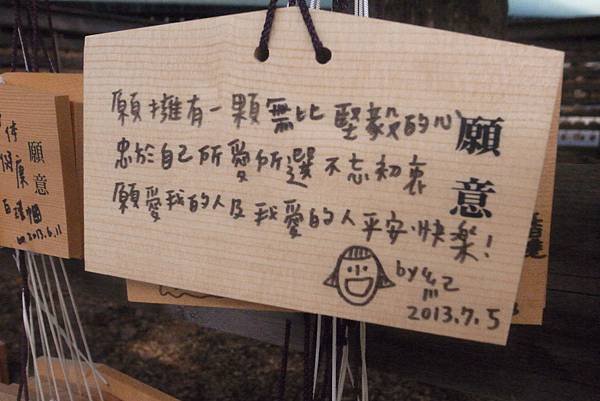 願擁有一顆無比堅毅的心
忠於自己所愛所選不忘初衷
願愛我的人及我愛的人平安、快樂!
by
2013.7.5
願意
願意
健康
2013.6.11